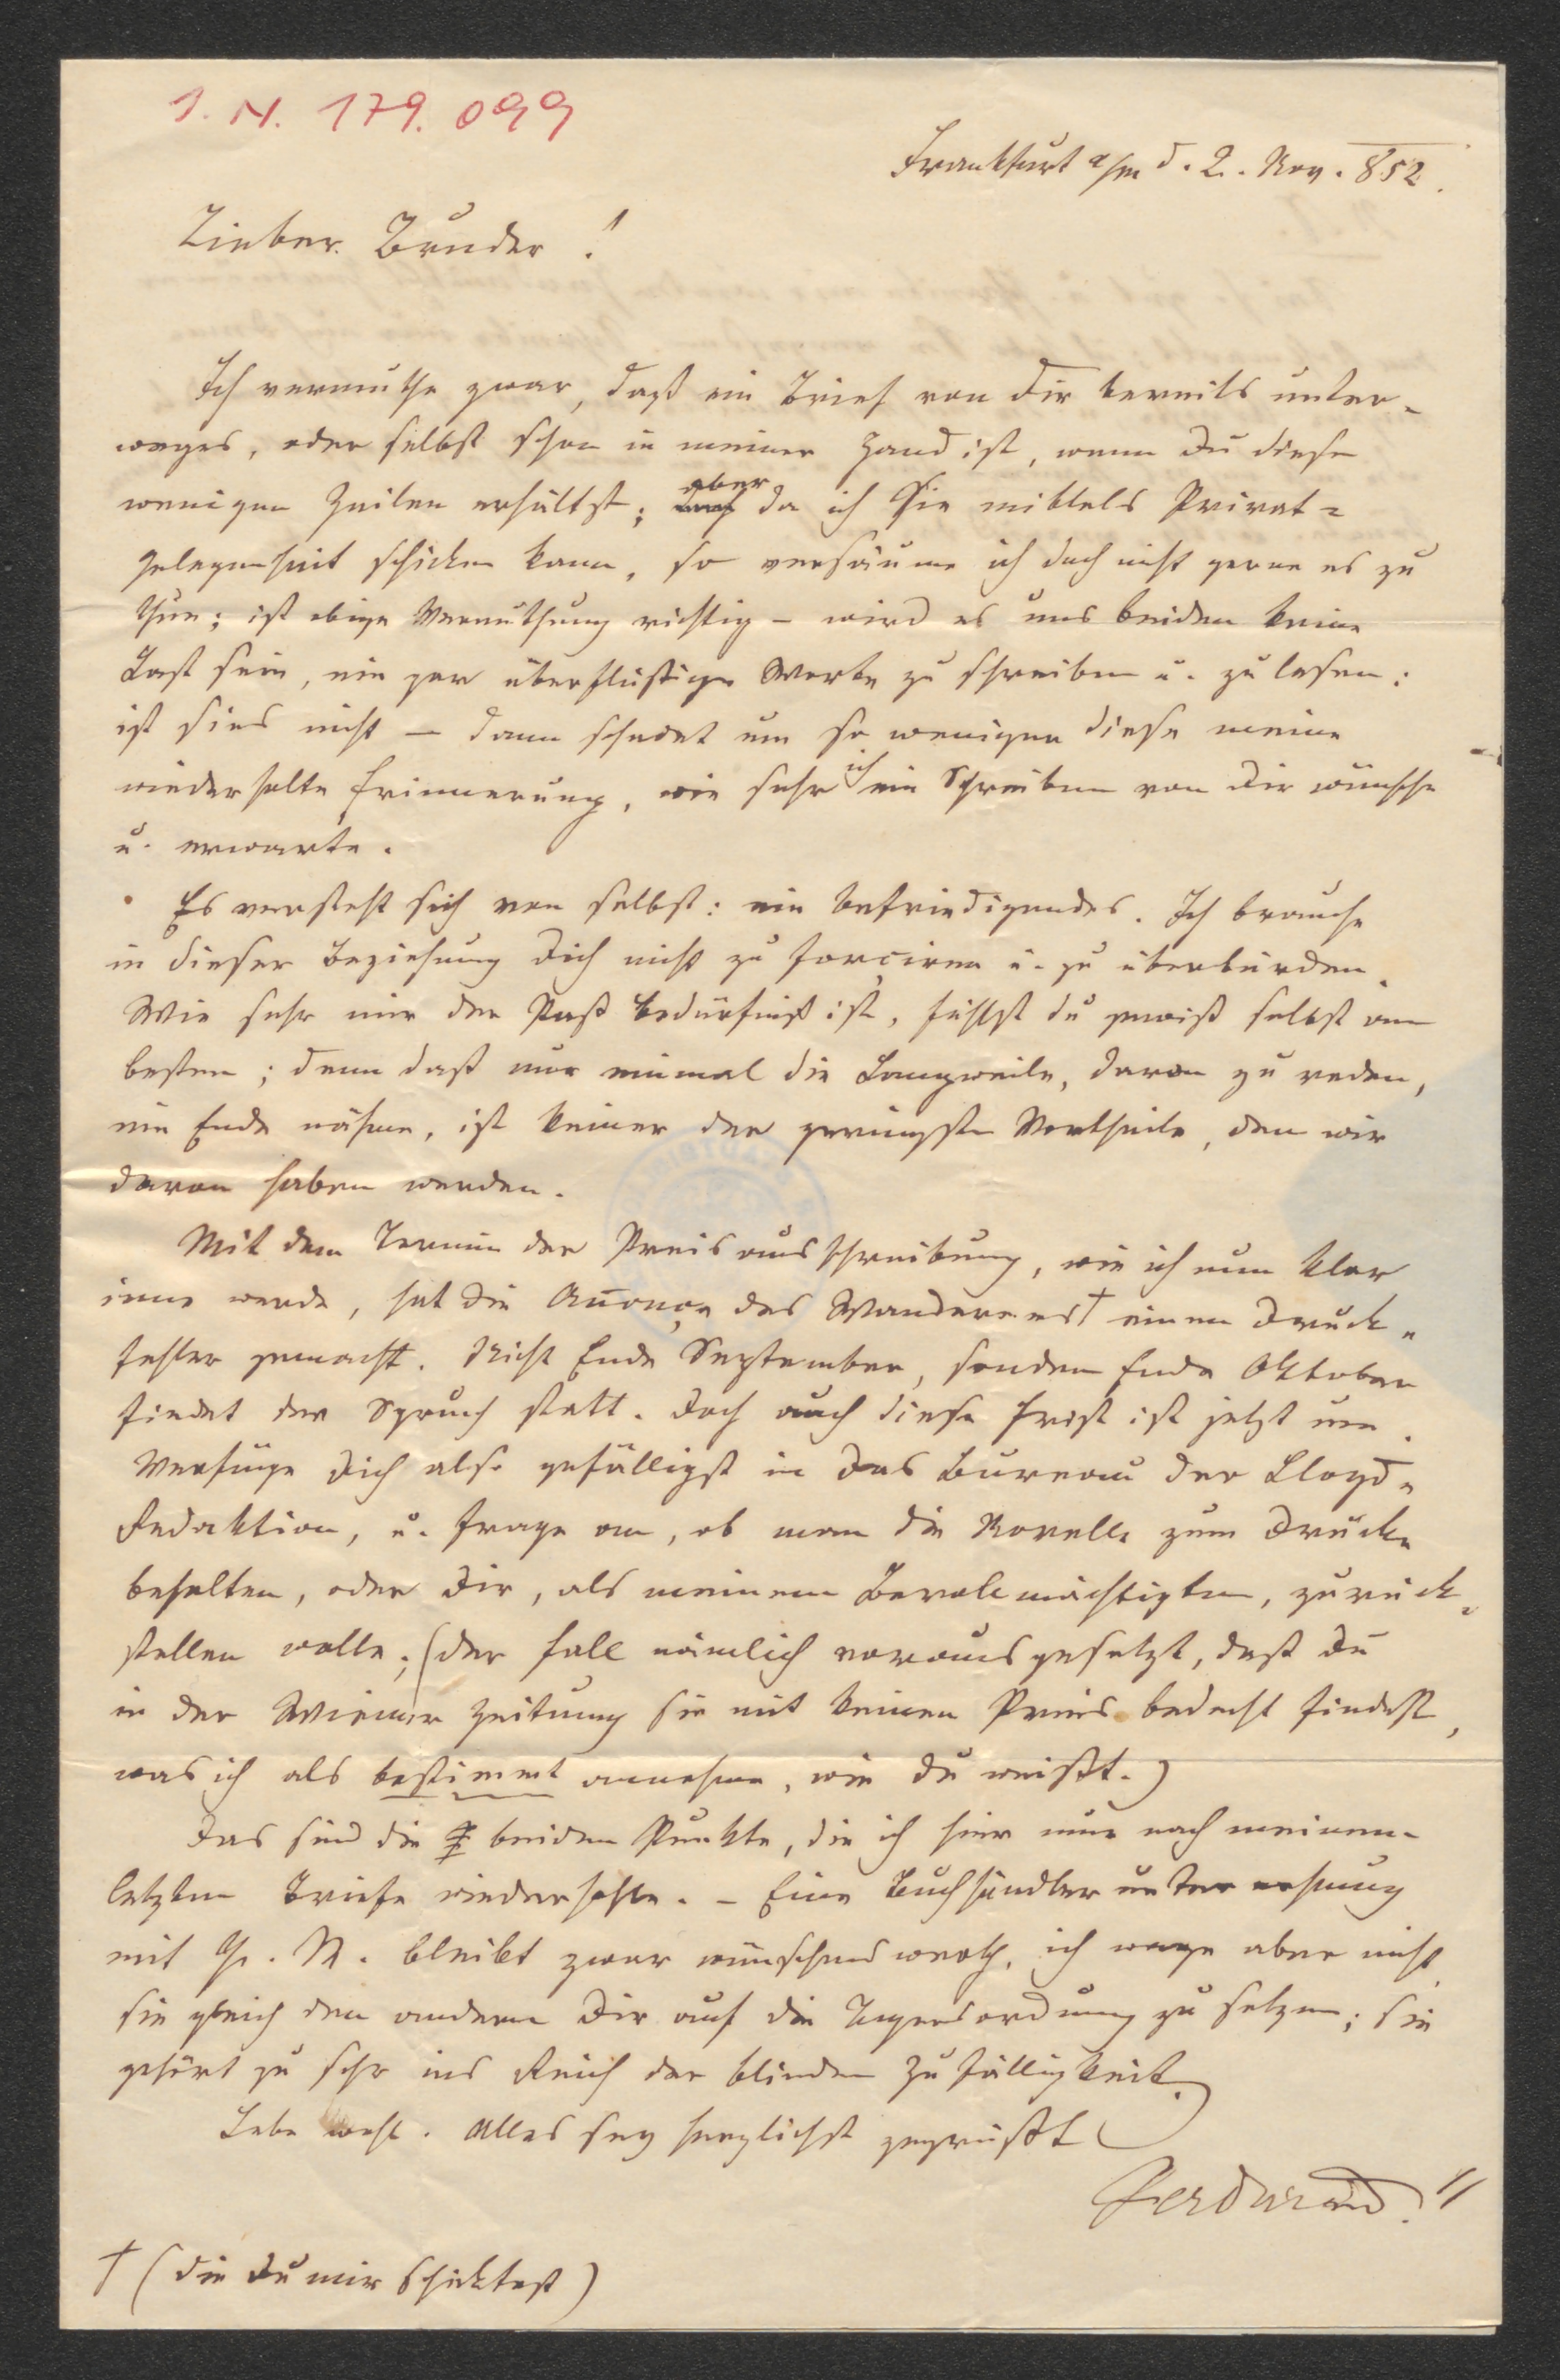 I. N. 179.099
Frankfurt a/m d. 2. Nov. 852.
Lieber Bruder!
Ich vermuthe zwar, daß ein Brief von Dir bereits unter-
weges, oder selbst schon in meiner Hand ist, wenn Du diese
wenigen Zeilen erhältst; aber da ich sie mittels Privat-
gelegenheit schicken kann, so versäume ich doch nicht gerne es zu
thun; ist obige Vermuthung richtig – wird es uns beiden keine
Last sein, ein par überflüßige Worte zu schreiben u. zu lesen:
ist sies nicht – dann schadet um so weniger diese meine
wiederholte Erinnerung, wie sehr ich ein Schreiben von Dir wünsche
u. erwarte.
Es versteht sich von selbst: ein befriedigendes. Ich brauche
in dieser Beziehung Dich nicht zu forçiren u. zu überbürden.
Wie sehr mir der Paß Bedürfniß ist, fühlst du gewiß selbst am
besten; denn daß nur einmal die Langweile, davon zu reden,
ein Ende nähme, ist keiner der geringsten Vortheile, den wir
davon haben werden.
Mit dem Termin der Preisausschreibung, wie ich nun klar
inne werde, hat die Annonçe des Wanderers † einen Druck-
fehler gemacht. Nicht Ende September, sondern Ende Oktober
findet der Spruch statt. Doch auch diese Frist ist jetzt um.
Verfüge Dich also gefälligst in das Bureau der Lloyd-
Redaktion, u. frage an, ob man die Novelle zum Drucke
behalten, oder Dir, als meinem Bevollmächtigten, zurück-
stellen wolle; (der Fall nämlich vorausgesetzt, daß Du
in der Wiener Zeitung sie mit keinen Preis bedacht findest,
was ich als bestimmt annehme, wie Du weißt.)
Das sind die beiden Punkte, die ich hier nur nach meinem
letzten Briefe wiederhohle. – Eine Buchhändlerunternehmung
mit Th. M. bleibt zwar wünschenswerth, ich wage aber nicht,
sie gleich den andern Dir auf die Tagesordnung zu setzen; sie
gehört zu sehr ins Reich der blinden Zufälligkeit.
Lebe wohl. Alles sey herzlichst gegrüßt
Ferdinand.
† (die Du mir schicktest)